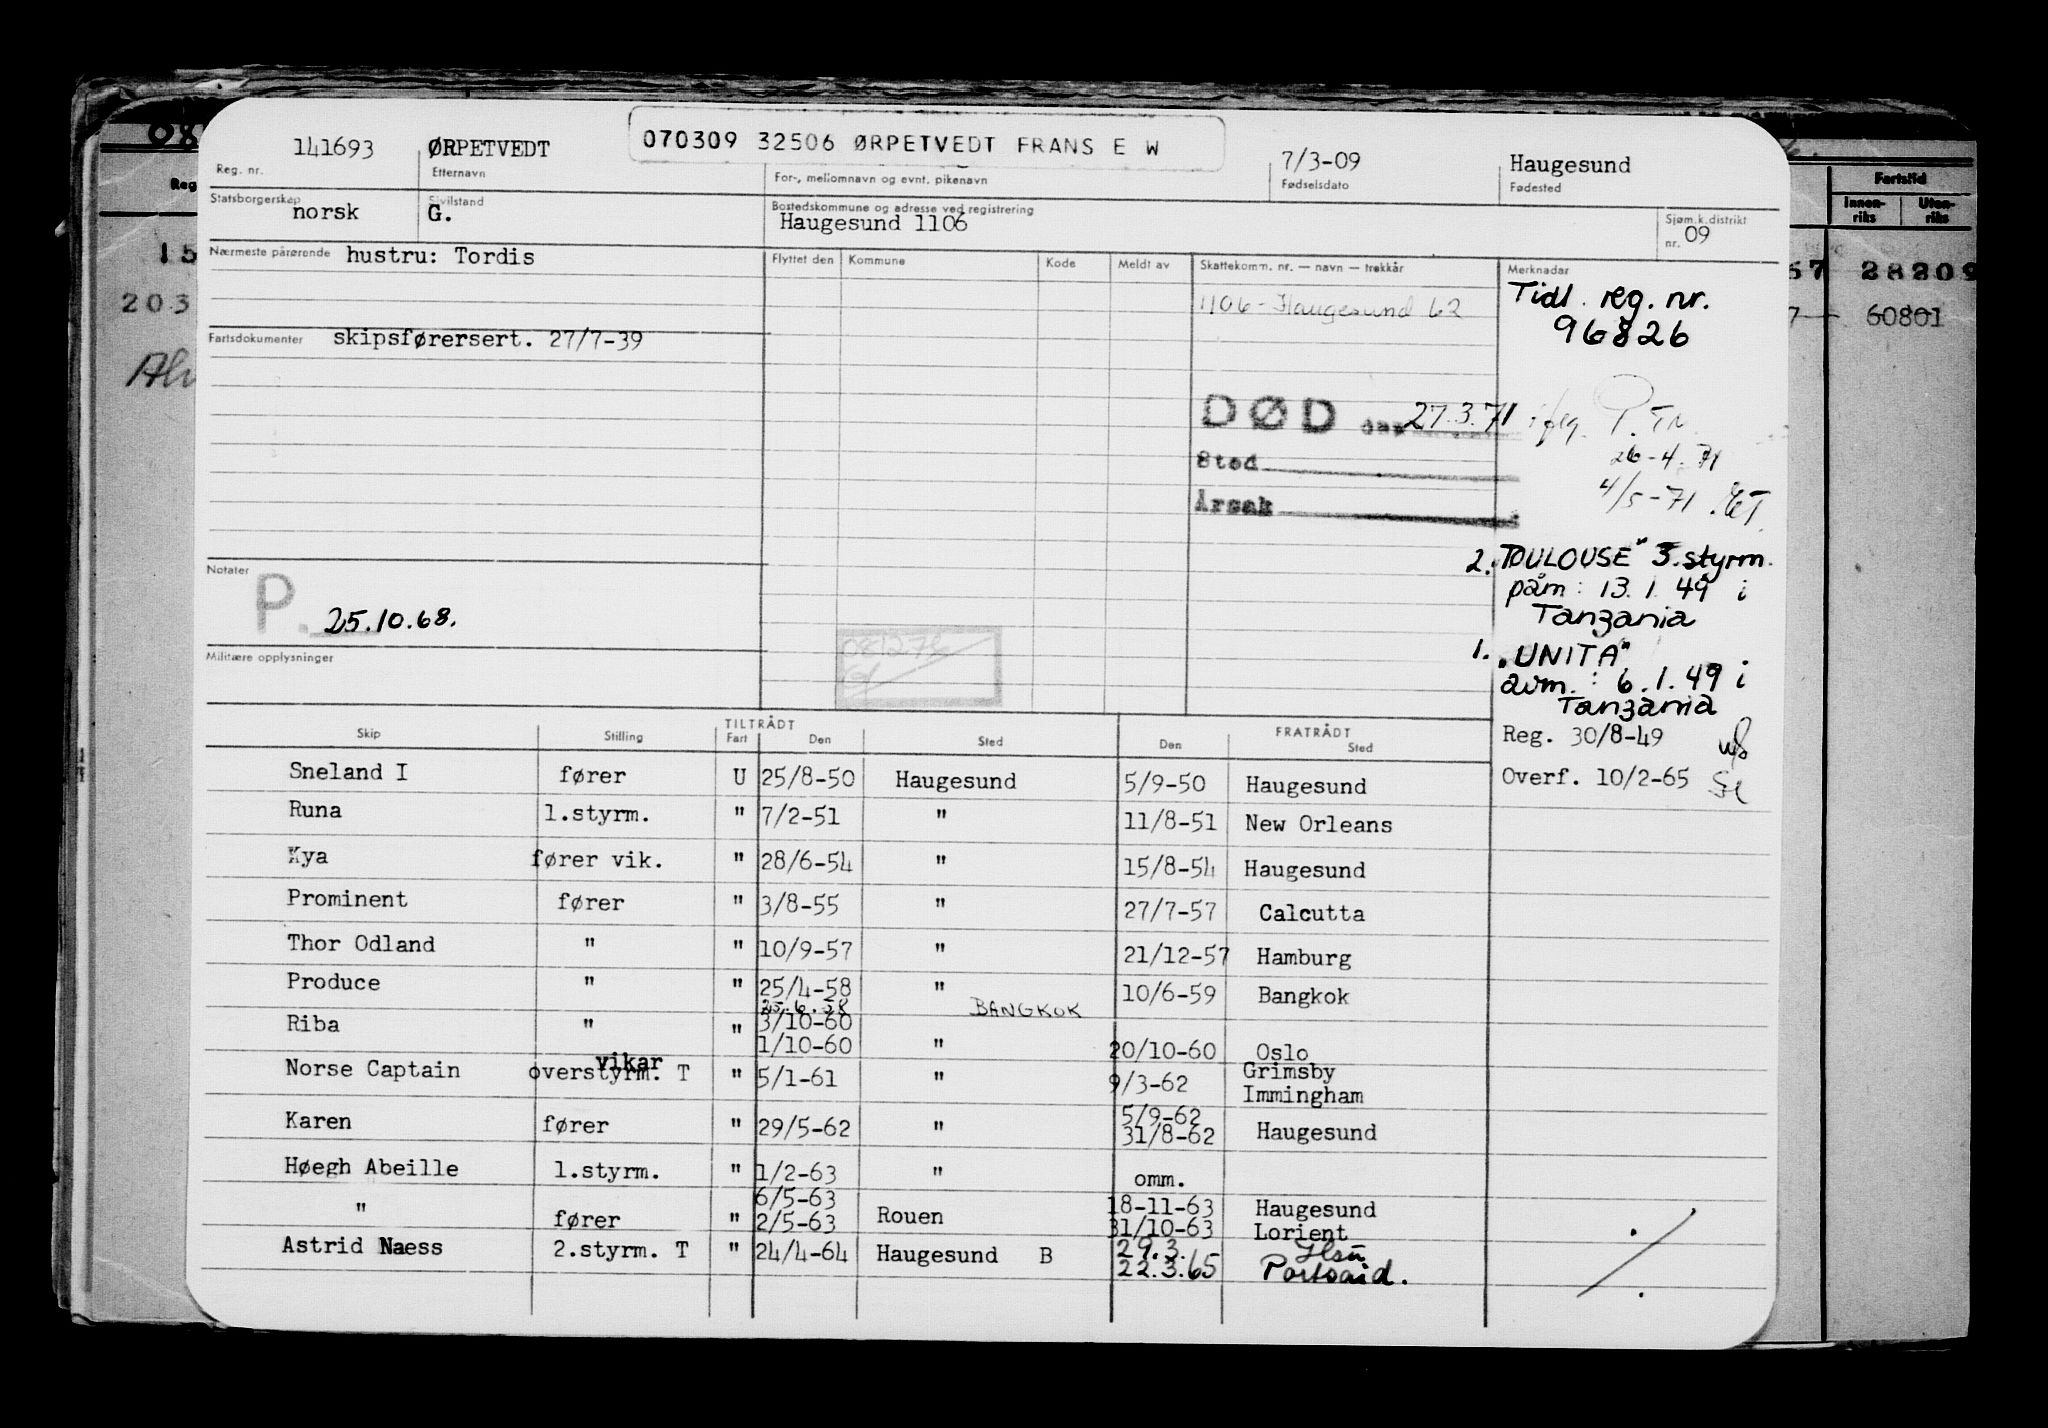 141693 ØRPETVEDT 070309 32506 ØRPETVEDT FRANS E W 7/3-09 Haugesund
Reg. nr. Etternavn For-, mellomnavn og evnt. pikenavn Fødselsdato Fødested
Statsborgerskap norsk Sivilstand G. Bostedskommune og adresse ved registrering Haugesund 1106 Sjøm.k.distrikt nr. 09
Nærmeste pårørende hustru: Tordis Flyttet den Kommune Kode Meldt av Skattekomm. nr. — navn — trekkår Merknader
1106 - Haugesund 62
Tidl. reg. nr.
96826
Fartsdokumenter skipsførersert. 27/7-39
DØD den 27.3.71
26-4.71
Sted
4/5-71
Årsak
2. TOULOUSE" 3. styrm.
påm: 13.1.49 i
Tanzania
1. "UNITA"
avm.: 6.1.49 i
Tanzania
Reg. 30/8-49
Overf. 10/2-65
Notater P. 25.10.68.
Militære opplysninger
Skip Stilling TILTRÅDT Fart Den Sted FRATRÅDT Den Sted
Sneland I fører U 25/8-50 Haugesund 5/9-50 Haugesund
Runa 1.styrm. " 7/2-51 " 11/8-51 New Orleans
Kya fører vik. " 28/6-54 " 15/8-54 Haugesund
Prominent fører " 3/8-55 " 27/7-57 Calcutta
Thor Odland " " 10/9-57 " 21/12-57 Hamburg
Produce " " 25/4-58 " 10/6-59 Bangkok
25.6.58 BANGKOK
Riba " " 3/10-60
1/10-60 " 20/10-60 Oslo
Norse Captain overstyrm. vikar T " 5/1-61 " 9/3-62 Grimsby
Immingham
Karen fører " 29/5-62 " 5/9-62
31/8-62 Haugesund
Høegh Abeille 1.styrm. " 1/2-63 " omm.
" fører " 6/5-63
2/5-63 Rouen 18-11-63 Haugesund
31/10-63 Lorient
Astrid Naess 2.styrm. T " 24/4-64 Haugesund B 29.3.
22.3.65 Portsaid.
Fartstid
Innenriks Utenriks
28209
60801